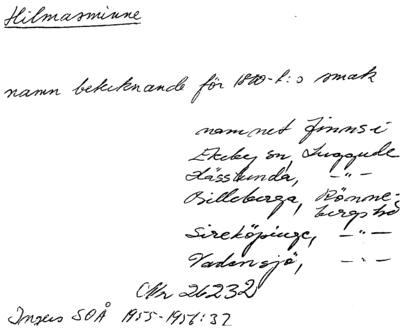 Hilmasminne
namn betecknande för 1800-t:s smak
namnet finns i
Ekeby sn, Luggude
Hässlunda, -"-
Billeberga, Rönne-
bergs hd
Sireköpinge, -"-
Vadensjö, -"-
(Nr 26232
Ingers SOÅ 1955-1956:32